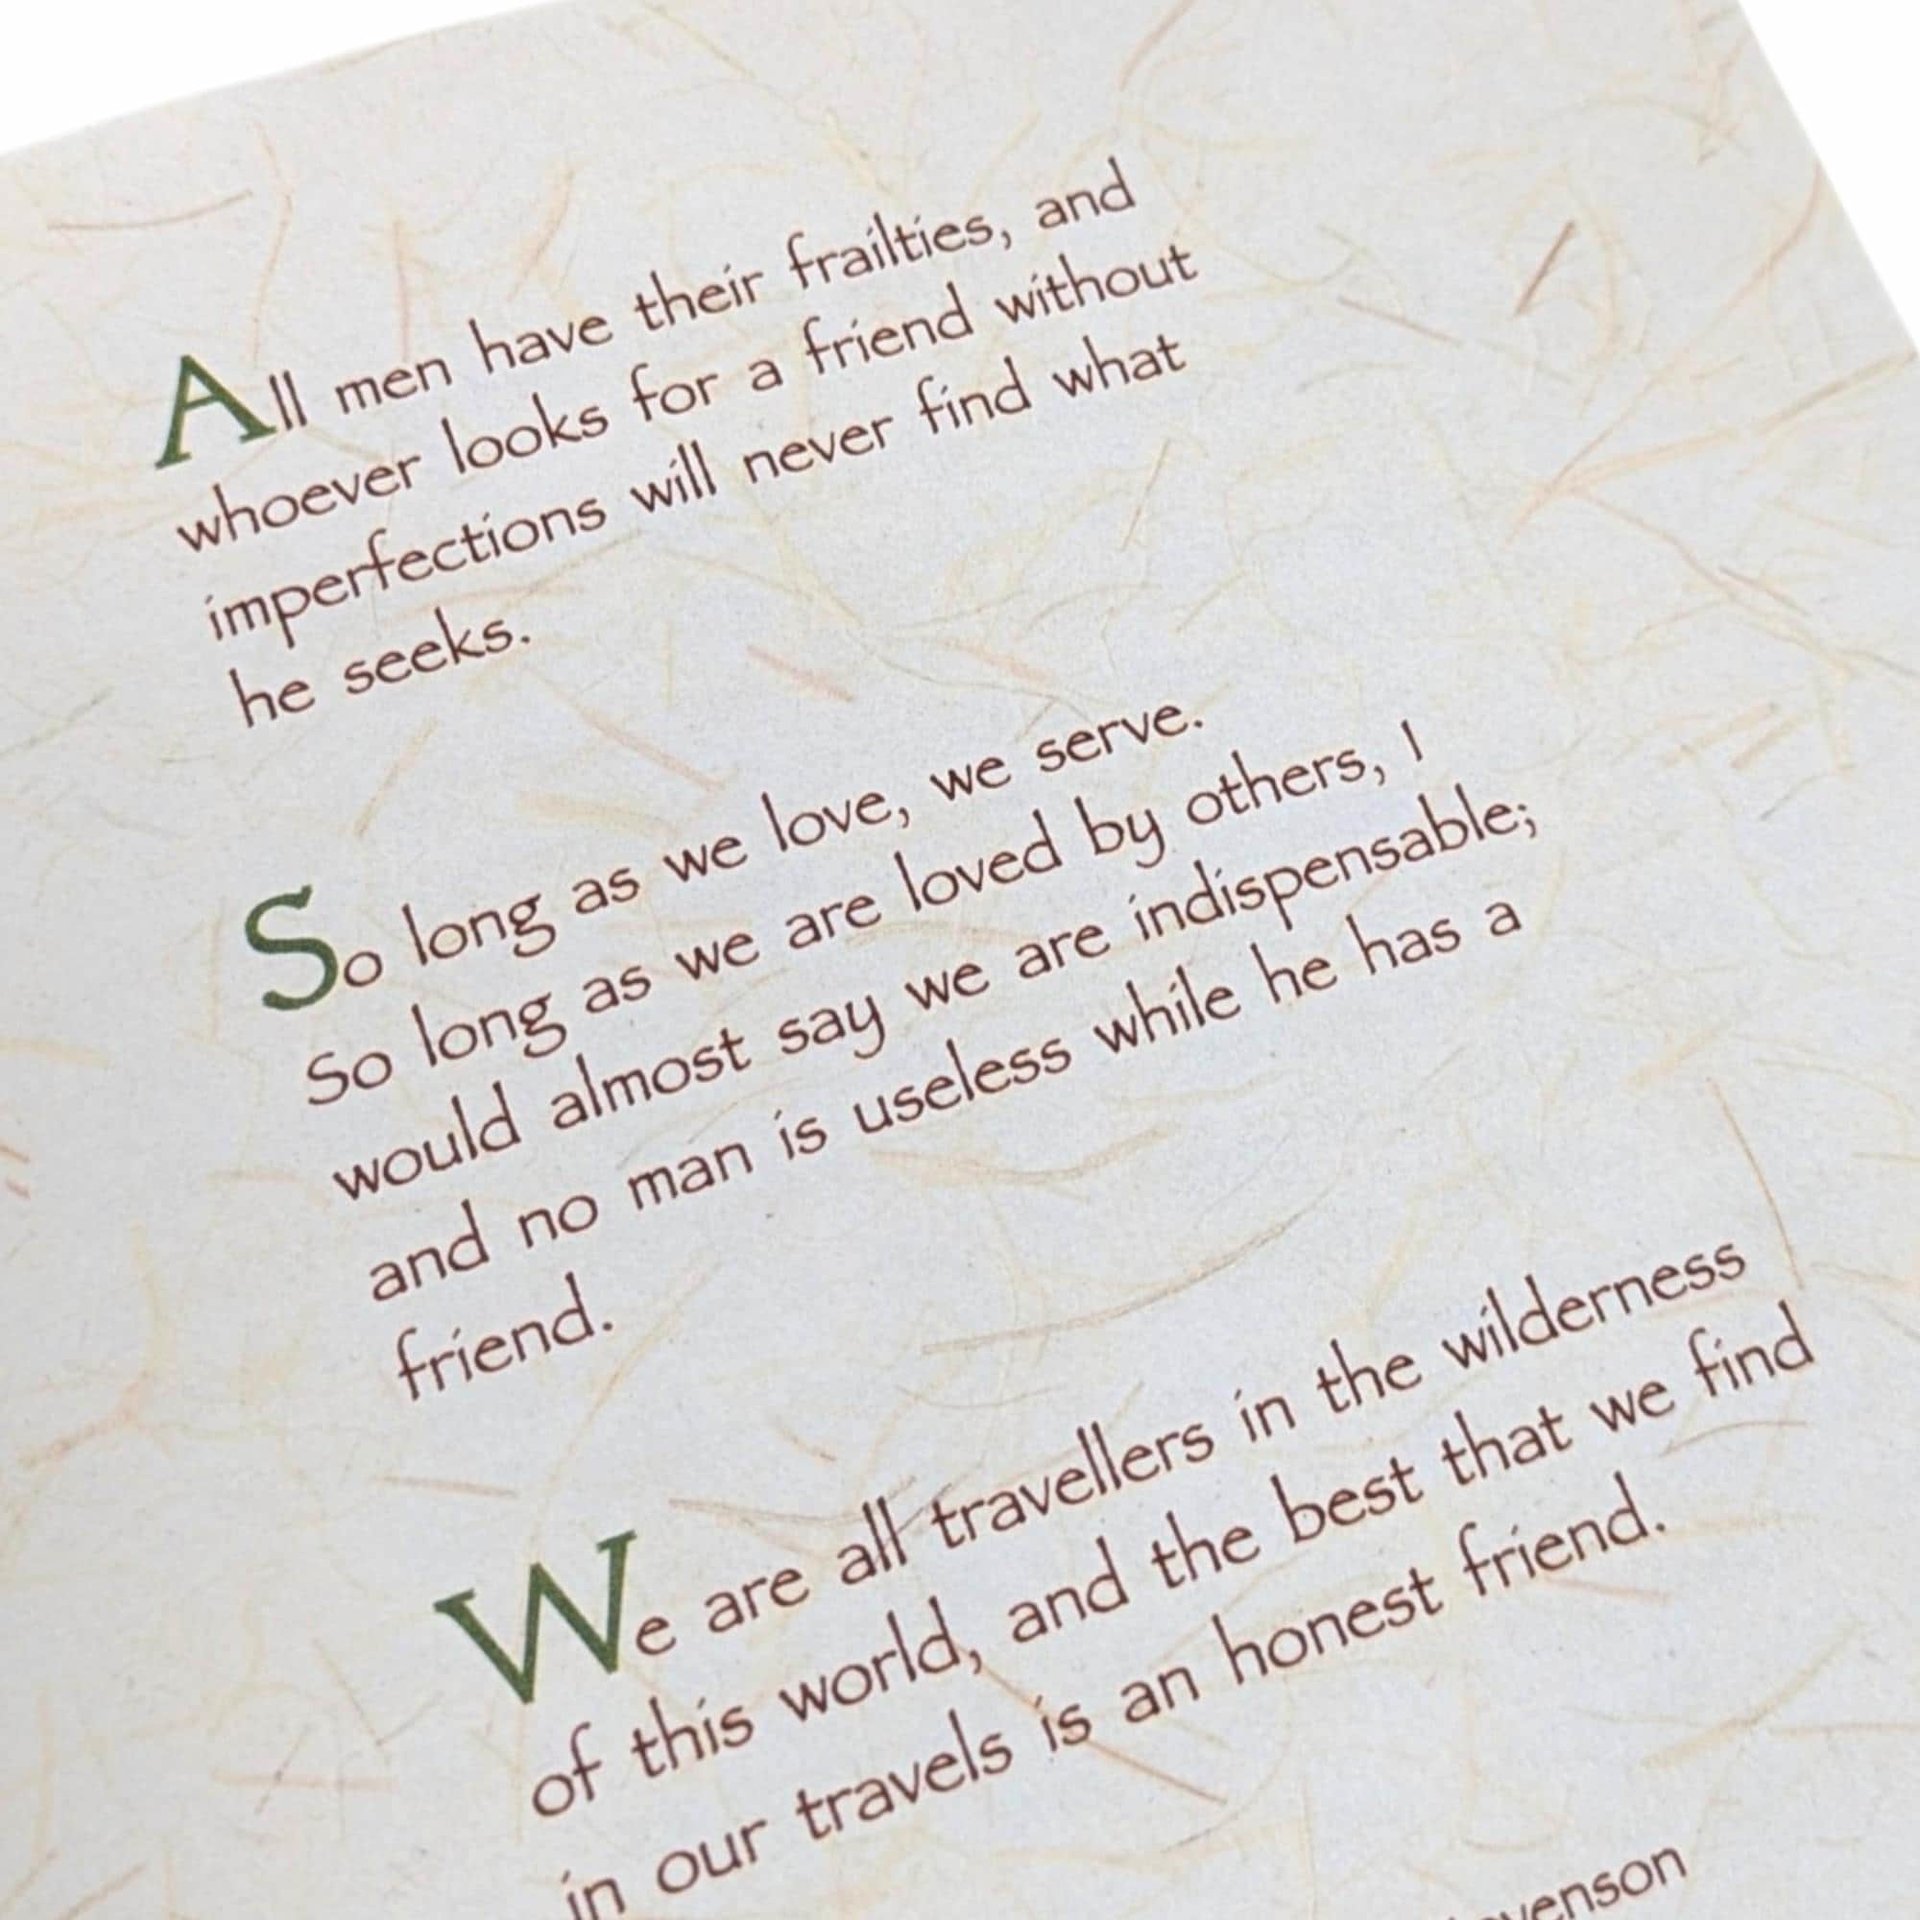 All men have their frailties, and
whoever looks for a friend without
imperfections will never find what
he seeks.
So long as we love, we serve.
So long as we are loved by others, I
would almost say we are indispensable;
and no man is useless while he has a
friend.
We are all travellers in the wilderness
of this world, and the best that we find
in our travels is an honest friend.